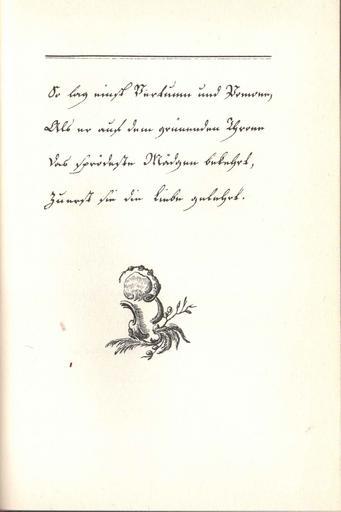 So lag einst Vertumn und Pomone,
Als er auf dem grünenden Throne
Das sprödeste Mädgen bekehrt,
Zuerst sie die Liebe gelehrt.